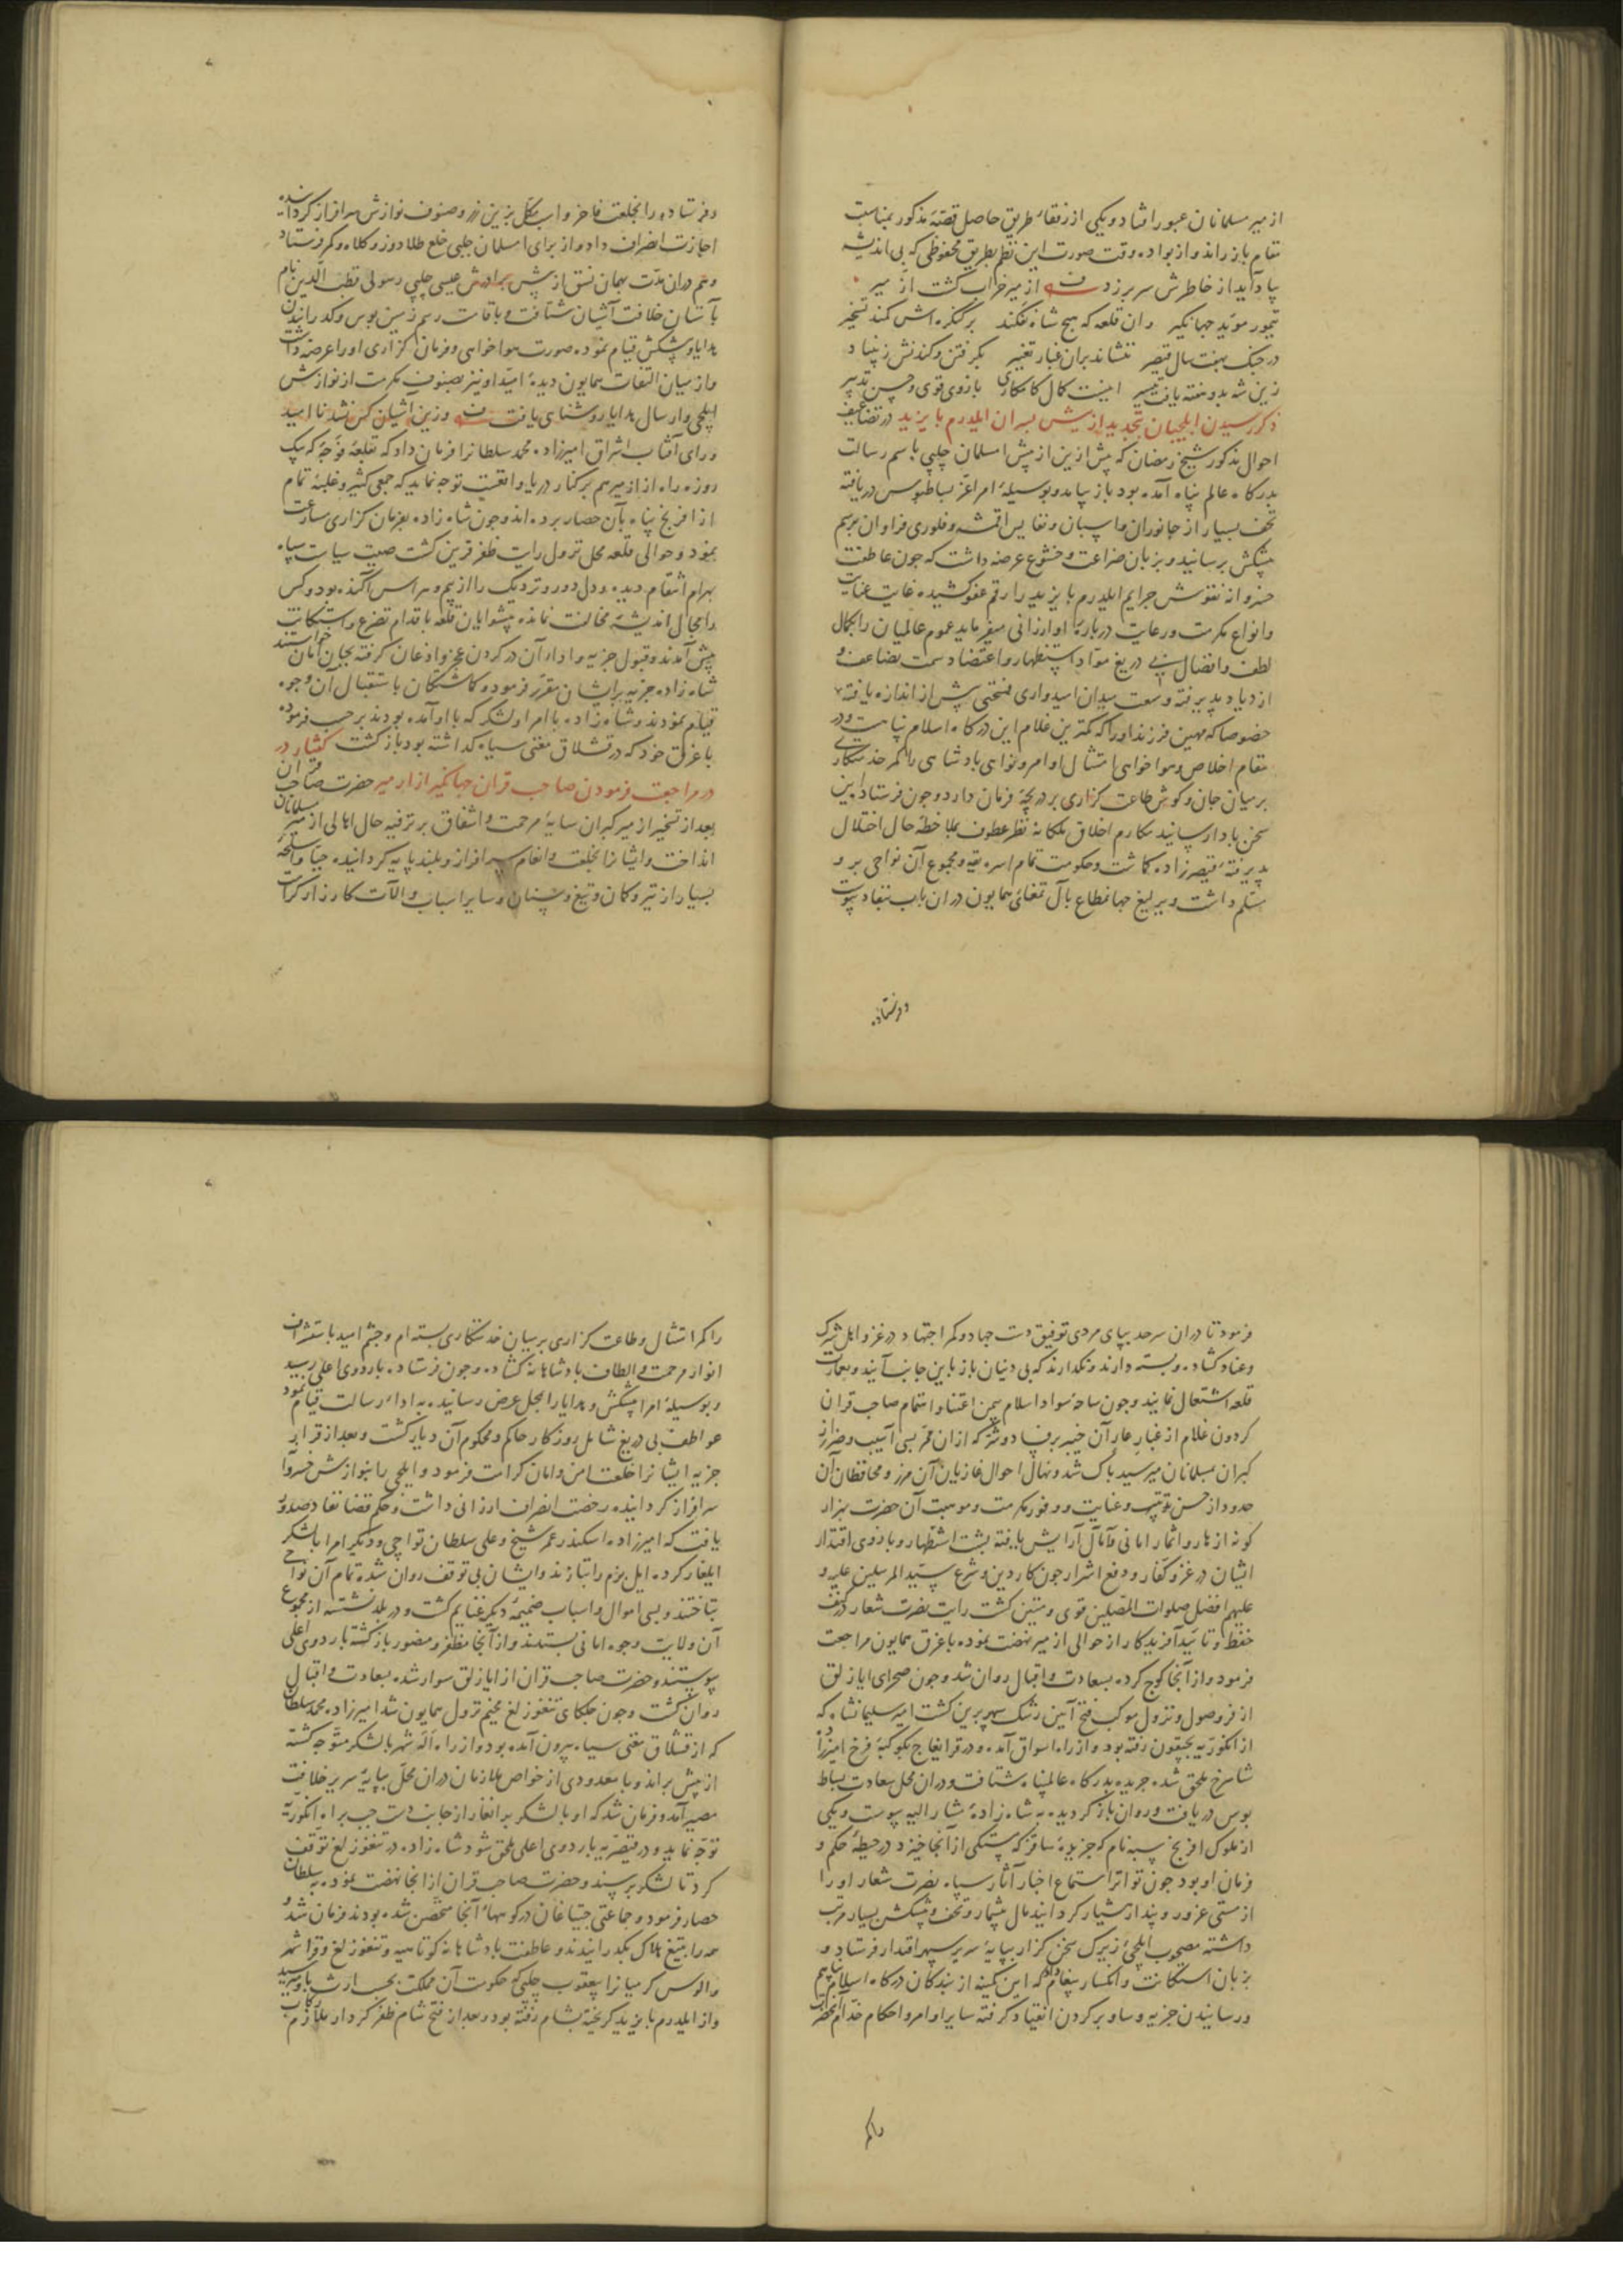 از میر مسلمانان عبور افتاد و یکی از رفقاء طریق حاصل قصّهٔ مذکور بمناسبت
مقام باز راند و از بواده وقت صورت این نظم بطریق محفوظی که بی اندیشه
یاد آید از خاطرش سر بر زد از میر خراب گشت از میر
تیمور موید جهانگیر وان قلعه که هیچ شاه نفکند بر کنگره اش کمند تسخیر
در جنگ بهفت سال قیصر ننشاند بران غبار تغییر بگرفتن و کندنش ز بنیاد
زین شه بدو هفته یافت تیسیر اینست کمال کامکاری بازوی قوی و حسن تدبیر
ذکر رسیدن ایلچیان بتجدید از پیش پسران ایلدرم بایزید در تضاعیف
احوال مذکور شیخ رمضان که پیش ازین از پیش امسلمان چلپی باسم رسالت
بدرگاه عالم پناه آمده بود باز بیامد و بوسیلهٔ امرا عزّ بساط بوس دریافته
تحف بسیار از جانوران و اسپان و نفایس اقمشه و فلوری فراوان برسم
پیشکش برسانید و بزبان ضراعت و خشوع عرضه داشت که چون عاطفت
خسروانه نقوش جرایم ایلدرم بایزید را رقم عفو کشیده غایت عنایت
وانواع مکرمت و رعایت دربارهٔ او ارزانی میفرماید عموم عالمیان را بکمال
لطف و افضال بی دریغ مواد استظهار و اعتضاد سمت تضاعف و
ازدیاد پذیرفته وسعت میدان امیدواری فسحتی بیش از اندازه یافته
خصوصا که مهین فرزند او را که کمترین غلام این درگاه اسلام پناهست و در
مقام اخلاص و هواخواهی امتثال اوامر و نواهی پادشاهی را کمر خدمتکاری
بر میان جان و گوش طاعت گزاری بر دریچهٔ فرمان دارد و چون فرستاده این
سخن بادا رسانید مکارم اخلاق ملکانه نظر عطوف بملاحظهٔ حال اختلال
پذیرفتهٔ قیصرزاده گماشت و حکومت تمام اسره یقه و مجموع آن نواحی برو
مسلم داشت و یرلیغ جهانمطاع بآل تمغای همایون دران باب بنفاد پیوست
و فرستاده
و فرستاده را بخلعت فاخر و اب بکل بزین زر و صنوف نوازش سرافراز گردانیده
اجازت انصراف داد و از برای امسلمان چلپی خلع طلا دوز و کلاه و کمر فرستاد
و هم دران مدّت بهمان نسق از پیش برادرش عیسی چلپی رسولی قطب الدین نام
بآستان خلافت آشیان شتافت و باقامت رسم زمین بوس و گذرانیدن
هدایا و پیشکش قیام نموده صورت هواخواهی و فرمان گزاری او را عرضه داشت
و از میان التفات همایون دیدهٔ امید او نیز بصنوف مکرمت از نوازش
ایلچی و ارسال هدایا روشنای یافت وزین آشیان کس نشد نا امید
ورای آفتاب اشراق امیرزاده محمد سلطانرا فرمان داد که بقلعهٔ فوجه که یک
روزه راه از ازمیر هم بر کنار دریا واقعست توجه نماید که جمعی کثیر و غلبهٔ تمام
از افرنج پناه بآن حصار برده اند و چون شاه زاده بفرمان گزاری مسارعت
بنمود و حوالی قلعه محل نزول رایت ظفر قرین گشت صیت سیاست سپاه
بهرام انتقام دیده و دل دور و نزدیک را از بیم و هراس آکنده بود و کس
را مجال اندیشهٔ مخالفت نمانده پیشوایان قلعه باقدام تضرع و استکانت
پیش آمدند و قبول جزیه و اداء آن در گردن عجز و اذعان گرفته بجان امان خواستند
شاه زاده جزیه برایشان مقرّر فرمود و گماشتگان باستقبال آن وجوه
قیام نمودند و شاه زاده با امرا و لشکر که با او آمده بودند بر حسب فرموده
با غرق خود که در قشلاق مغنی سیاه گذاشته بود بازگشت گفتار در
در مراجعت فرمودن صاحب قران جهانگیر از ازمیر حضرت صاحب قران
بعد از تسخیر ازمیر گبران سایهٔ مرحمت و اشفاق بر ترفیه حال اهالی ازمیر مسلمانان
انداخت و ایشانرا بخلعت و انعام سرافراز و بلند پایه گردانیده جیبا و اسلحهٔ
بسیار از تیر و کمان و تیغ و سنان و سایر اسباب و آلات کارزار کرامت
فرمود تا دران سرحد بپای مردی توفیق دست جهاد و کمر اجتهاد در غزو اهل شرک
و عناد گشاده و بسته دارند و نگذارند که بی دینان باز باین جانب آیند و بعمارت
قلعه اشتغال نمایند و چون ساحهٔ سواد اسلام بیمن اعتنا و اهتمام صاحب قران
گردون غلام از غبار عار آن خیبر بر فساد و شر که ازان ممر بسی آسیب و ضرر از
گبران بمسلمانان میرسید پاک شد و نهال احوال غازیان آن مرز و محافظان آن
حدود از حسن تربیت و عنایت و وفور مکرمت و موهبت آن حضرت هزار
گونه ازهار و اثمار امانی و آمال آرایش یافته پشت استظهار و بازوی اقتدار
ایشان در غزو کفار و دفع اشرار چون کار دین و شرع سید المرسلین علیه و
علیهم افضل صلوات المصلین قوی و متین گشت رایت نصرت شعار در کنف
حفظ و تأیید آفریدگار از حوالی ازمیر نهضت نموده باغرق همایون مراجعت
فرمود و از آنجا کوچ کرده بسعادت و اقبال روان شد و چون صحرای ایازلق
از فر وصول و نزول موکب فتح آیین رشک سپهر برین گشت امیر سلیمانشاه که
از انکوریه بجیقون رفته بود و از راه اسواق آمده و در قرا یغاج بکوکبهٔ فرخ امیرزاده
شاهرخ ملحق شده جریده بدرگاه عالمپناه شتافت و دران محل سعادت بساط
بوس دریافت و روان باز گردیده بشاه زادهٔ مشار الیه پیوست و یکی
از ملوک افرنج سبه نام که جزیرهٔ ساقز که مستکی از آنجا خیزد در حیطهٔ حکم و
فرمان او بود چون تواتر استماع اخبار آثار سپاه نصرت شعار او را
از مستی غرور و پندار هشیار گردانید مال بیشمار و تحف و پیشکش بسیار مرتب
داشته مصحوب ایلچی زیرک سخن گزار بپایهٔ سریر سپهر اقتدار فرستاد و
بزبان استکانت و انکسار پیغام داد که این کمینه از بندگان درگاه اسلام پناهیم
و رسانیدن جزیه و ساو بر گردن انقیاد گرفته سایر اوامر و احکام خدّام آنحضرت
را کمر
را کمر امتثال و طاعت گزاری بر میان خدمتکاری بسته ام و چشم امید باستشراق
انوار مرحمت و الطاف پادشاهانه گشاده و چون فرستاده باردوی اعلی رسید
و بوسیلهٔ امرا پیشکش و هدایا را بمحل عرض رسانیده به اداء رسالت قیام نمود
عواطف بی دریغ شامل روزگار حاکم و محکوم آن دیار گشت و بعد از قرار
جزیه ایشانرا خلعت امن و امان کرامت فرمود و ایلچی را بنوازش خسروانه
سرافراز گردانیده رخصت انصراف ارزانی داشت و حکم قضا نفاد صدور
یافت که امیرزاده اسکندر عمر شیخ و علی سلطان تواچی و دیگر امرا با لشکر
ایلغار کرده ایل بزم را بتازند و ایشان بی توقف روان شده تمام آن نواحی
بتاختند و بسی اموال و اسباب ضمیمهٔ دیگر غنایم گشت و در بلد نشسته از مجموع
آن ولایت وجوه امانی بستدند و از آنجا مظفر و منصور بازگشته باردوی اعلی
پیوستند و حضرت صاحب قران از ایازلق سوار شده بسعادت و اقبال
روان گشت و چون جلکای تنغوزلغ مخیم نزول همایون شد امیرزاده محمد سلطان
که از قشلاق مغنی سیاه بیرون آمده بود و از راه آله شهر با لشکر متوجه گشته
از پیش براند و با معدودی از خواص ملازمان دران محلّ بپایهٔ سریر خلافت
مصیر آمد و فرمان شد که او با لشکر برانغار از جانب دست چپ براه انکوریه
توجه نماید و در قیصریه باردوی اعلی ملحق شود شاه زاده در تنغوزلغ توقف
کرد تا لشکر برسیند و حضرت صاحب قران از انجا نهضت نموده به سلطان
حصار فرمود و جماعتی جتیاغان در کوههاء آنجا متحصّن شده بودند فرمان شد و
همه را بتیغ هلاک بگذرانیدند و عاطفت پادشاهانه کوتاهیه و تنغوزلغ و قرا شهر
و الوس کرمیانرا بیعقوب چلپی که حکومت آن مملکت بحسب ارث باو میرسید
و از ایلدرم بایزید گریخته بشام رفته بود و بعد از فتح شام ظفر کردار ملازم رکاب